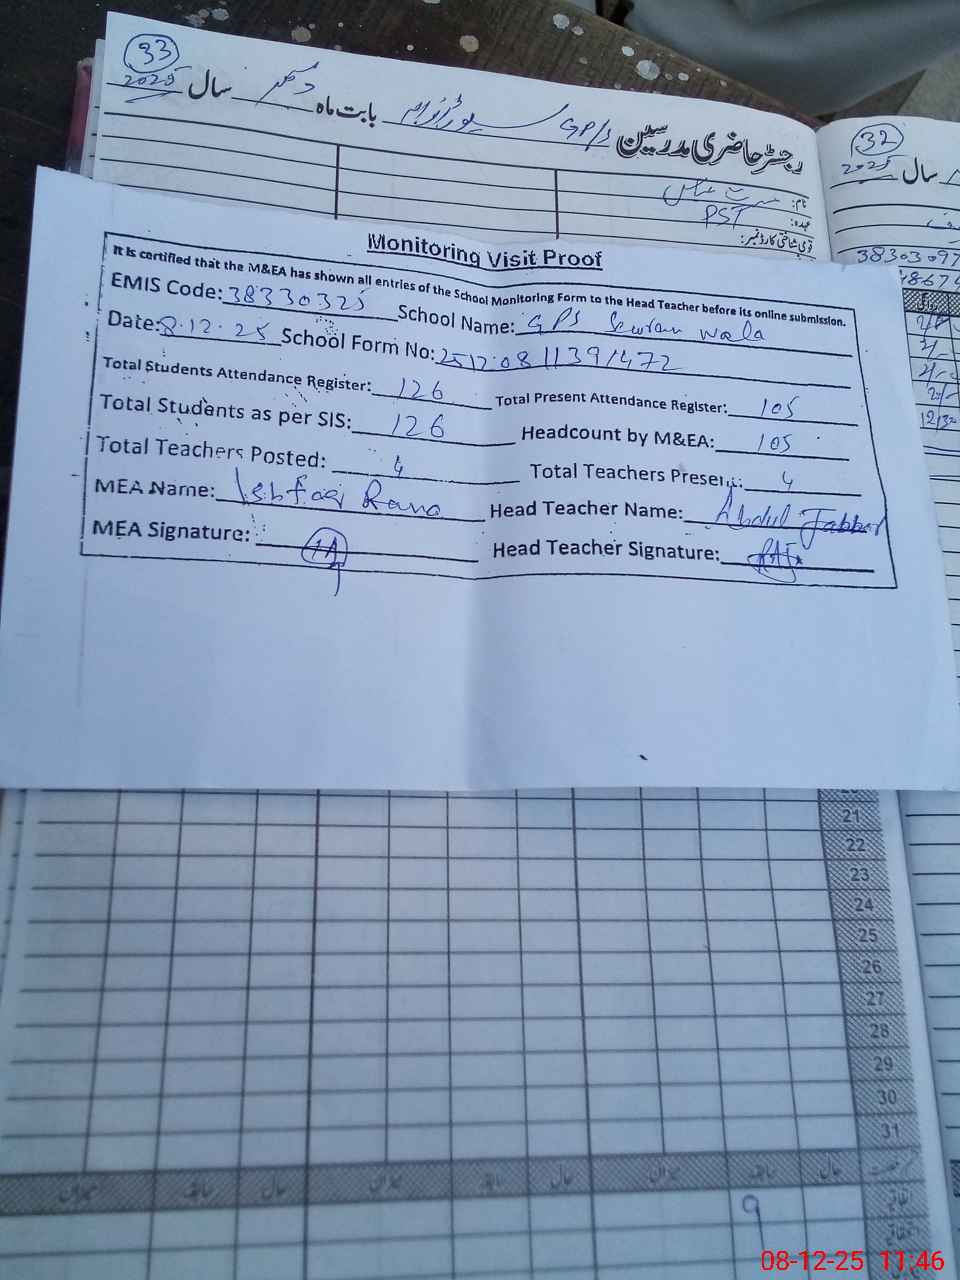 33
2025 سال دسمبر بابت ماہ GP/S رجسٹر حاضری مدرسین
نام:
عہدہ: PST
قومی شناختی کارڈ نمبر:
32
2025 سال
3830397
Monitoring Visit Proof
It is certified that the M&EA has shown all entries of the School Monitoring Form to the Head Teacher before its online submission.
EMIS Code: 38330325 School Name: GPS Sewran wala
Date: 8.12.25 School Form No: 25120811391472
Total Students Attendance Register: 126 Total Present Attendance Register: 105
Total Students as per SIS: 126 Headcount by M&EA: 105
Total Teachers Posted: 4 Total Teachers Present: 4
MEA Name: Ishfaq Rana Head Teacher Name: Abdul Jabbar
MEA Signature: Head Teacher Signature:
21
22
23
24
25
26
27
28
29
30
31
میزان سابقہ حال میزان سابقہ حال میزان سابقہ حال
اتفاقیہ
9
08-12-25 11:46